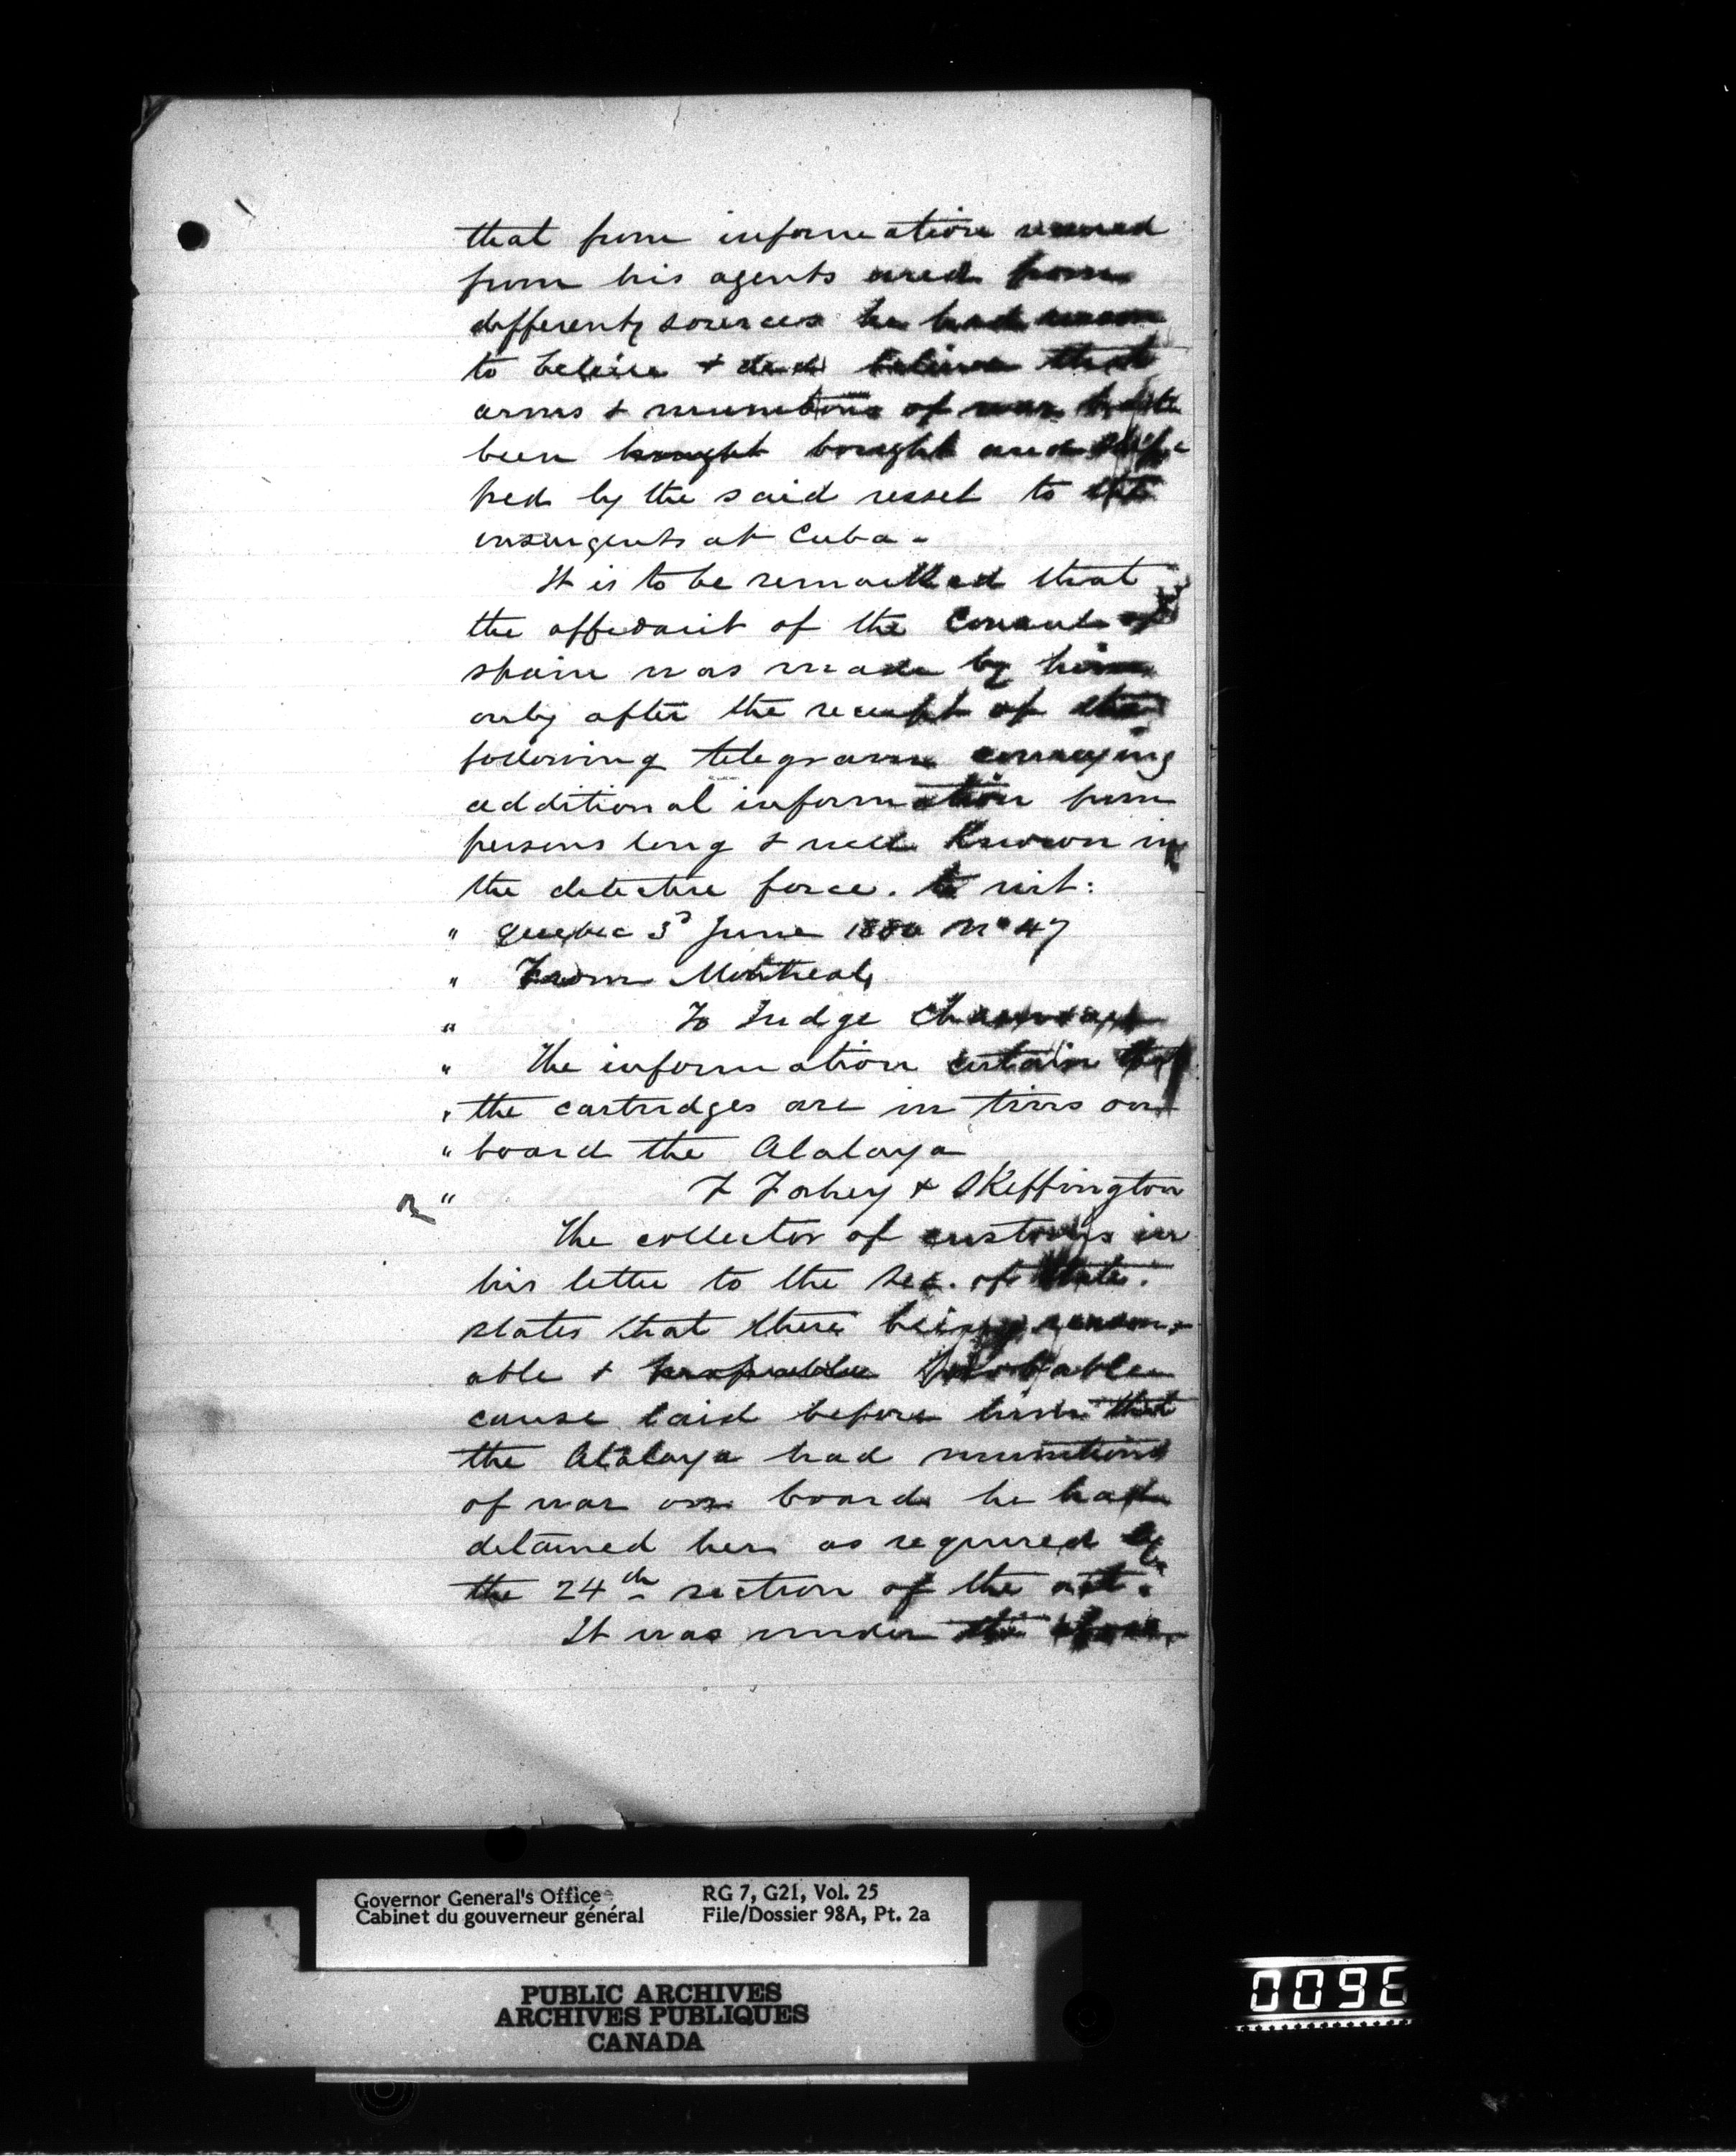 that from information received
from his agents and from
different sources he had reason
to beleive & did believe that
arms & munitions of war had
been bought bought and ship-
ped by the said vessel to the
insurgents at Cuba -
It is to be remarked that
the affidavit of the Consul of
Spain was made by him
only after the receipt of the
following telegram conveying
additional information from
persons long & well known in
the detective force. to wit:
" Quebec 3d June 1880 No 47
" From Montreal
" To Judge Chauveau
" The information certain that
" the cartridges are in tins on
" board the Atalaya
" F Fahey & Skeffington
The collector of customs in
his letter to the Sec. of State.
states that there being reason-
able & probable
cause laid before him that
the Atalaya had munitions
of war on board he had
detained her as required by
the 24th section of the act.
It was under the above
Governor General's Office
Cabinet du gouverneur général
RG 7, G21, Vol. 25
File/Dossier 98A, Pt. 2a
PUBLIC ARCHIVES
ARCHIVES PUBLIQUES
CANADA